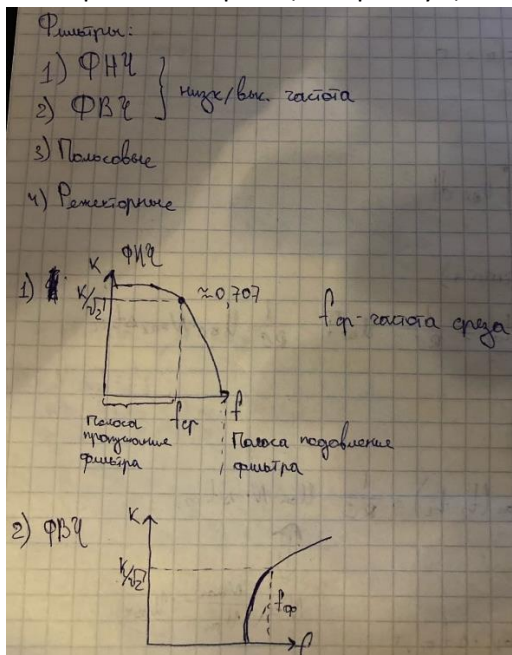 Фильтры:
1) ФНЧ
2) ФВЧ
} низк/выс. частота
3) Полосовые
4) Режекторные
1)
ФНЧ
K
K/√2
≈0,707
fср - частота среза
fср
f
Полоса
пропускание
фильтра
Полоса подавление
фильтра
2) ФВЧ
K
K/√2
fср
f